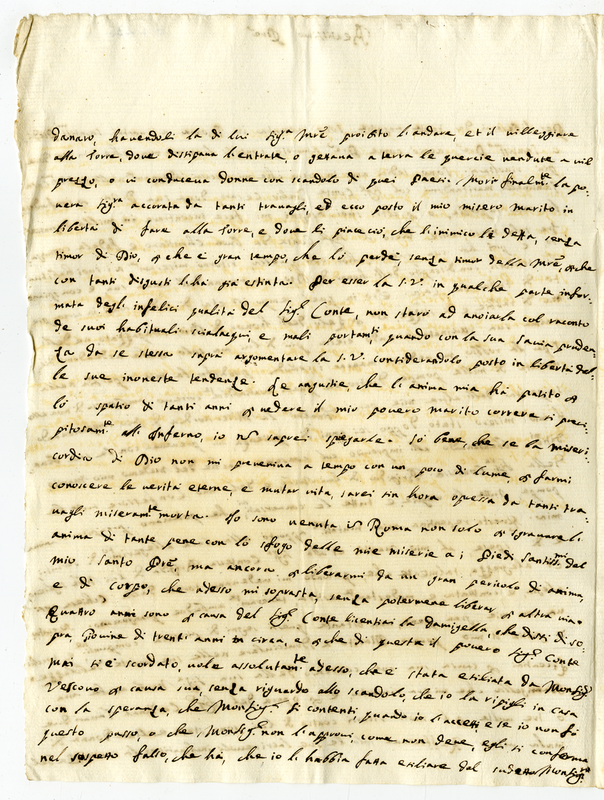 danaro, havendoli la di lui Sig.ra Mre proibito l'andare, et il villeggiare
alla Torre, dove dissipava l'entrate, o gettava a terra le quercie vendute a vil
prezzo, o vi conduceva donne con scandolo di quei Paesi. Morì finalm.te la po-
vera Sig.ra accorata da tanti travagli, ed ecco posto il mio misero marito in
libertà di stare alla Torre, e dove li piace ciò, che l'inimico li detta, senza
timor di Dio, che è gran tempo, che lo perdè, senza timor della Mre, che
con tanti disgusti li ha già estinta. Per esser la S.V. in qualche parte infor-
mata degl'infelici qualità del Sig.r Conte, non starò ad anoiarla col raconto
de suoi habituali scialacqui, e mali portam.ti quando con la sua savia pruden-
za da se stessa saprà argomentare la S.V. considerandolo posto in libertà del-
le sue inoneste tendenze. Le angustie, che l'anima mia hà patito
lo spatio di tanti anni vedere il mio povero marito correre sì preci-
pitosam.te all'Inferno, io nõ saprei spiegarle. So bene, che se la miseri-
cordia di Dio non mi preveniva a tempo con un poco di lume, farmi
conoscere le verità eterne, e mutar vita, sarei sin hora oppressa da tanti tra-
vagli miseram.te morta. Io sono venuta in Roma non solo sgravare l'
anima di tante pene con lo sfogo delle mie miserie a i Piedi Santiss.mi del
mio Santo Pre, ma ancora liberarmi da un gran pericolo di anima,
e di corpo, che adesso mi soprasta, senza potermene liberar altra via.
Quattro anni sono causa del Sig.r Conte licentiai la damigella, che dissi di so-
pra, Giovine di trenti anni in circa, e che di questa il povero Sig.r Conte
mai si è scordato, vole assolutam.te adesso, che è stata esiliata da Monsig.r
Vescovo causa sua, senza riguardo allo scandolo, che io la ripigli in casa
con la speranza, che Monsig.r si contenti, quando io l'accetti e se io non fò
questo passo, o che Monsig.r non l'approvi, come non deve, egli si conferma
nel sospetto falso, che hà, che io l'habbia fatta esiliare dal sudetto Monsig.r